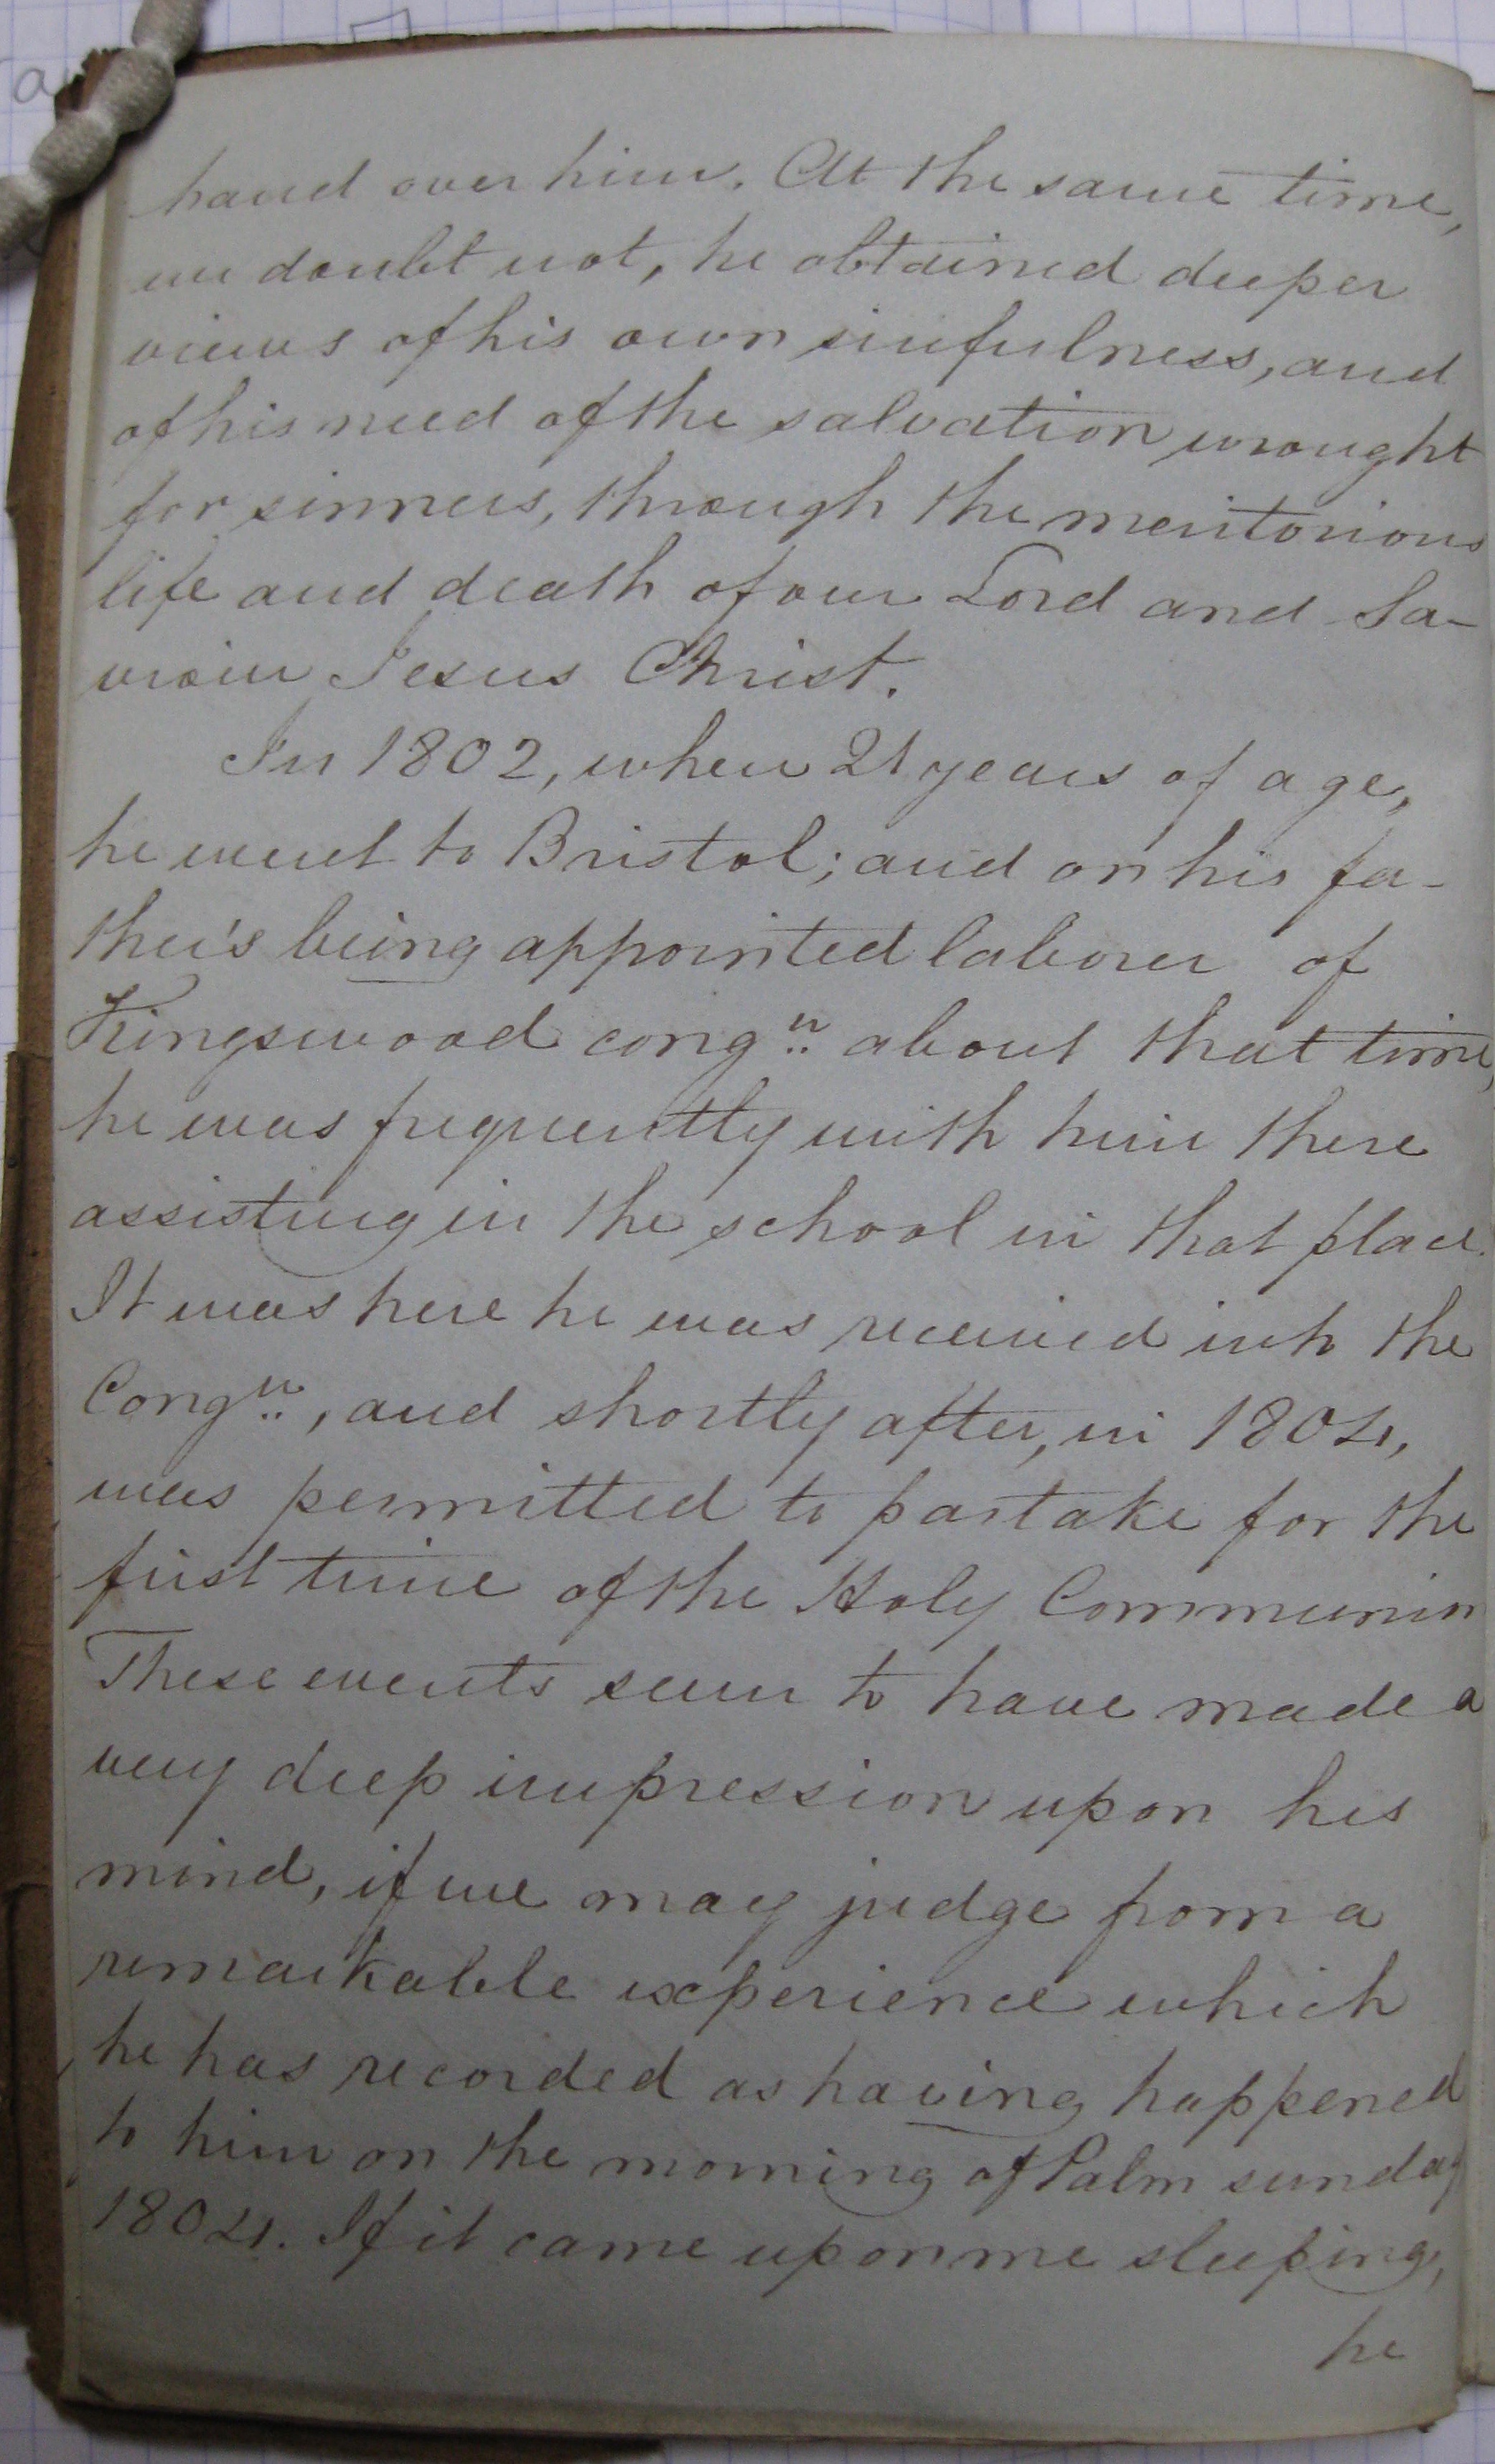 hand over him. At the same time,
we doubt not, he obtained deeper
views of his own sinfulness, and
of his need of the salvation wrought
for sinners, through the meritorious
life and death of our Lord and Sa-
viour Jesus Christ.
In 1802, when 21 years of age,
he went to Bristol; and on his fa-
ther's being appointed laborer of
Kingswood congn. about that time,
he was frequently with him there
assisting in the school in that place.
It was here he was received into the
Congn., and shortly after, in 1804,
was permitted to partake for the
first time of the Holy Communion
These events seem to have made a
very deep impression upon his
mind, if we may judge from a
remarkable experience which
he has recorded as having happened
to him on the morning of Palm sunday
1804. If it came upon me sleeping,
he